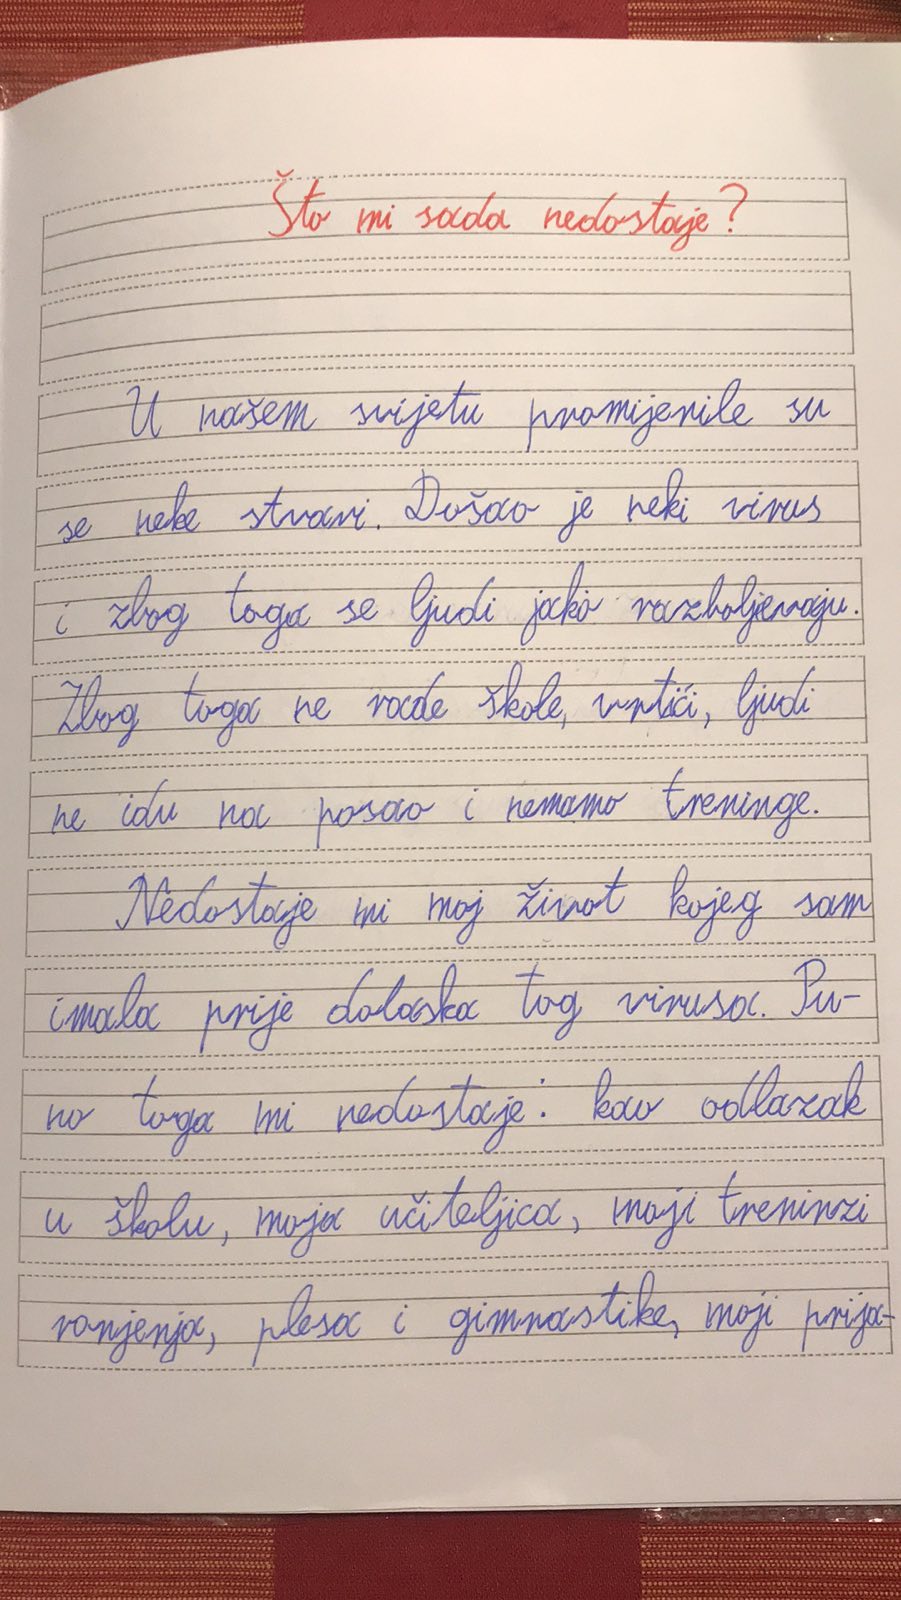 Što mi sada nedostaje?
U našem svijetu promijenile su
se neke stvari. Došao je neki virus
i zbog toga se ljudi jako razboljevaju.
Zbog toga ne rade škole, vrtići, ljudi
ne idu na posao i nemamo treninge.
Nedostaje mi moj život kojeg sam
imala prije dolaska tog virusa. Pu-
no toga mi nedostaje: kao odlazak
u školu, moja učiteljica, moji treninzi
ronjenja, plesa i gimnastike, moji prija-